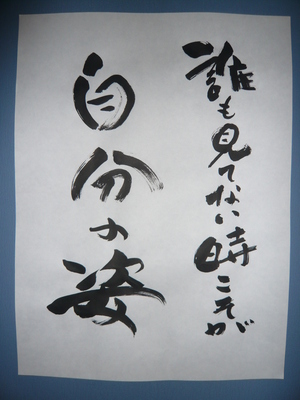 誰も見てない時こそが
自分の姿